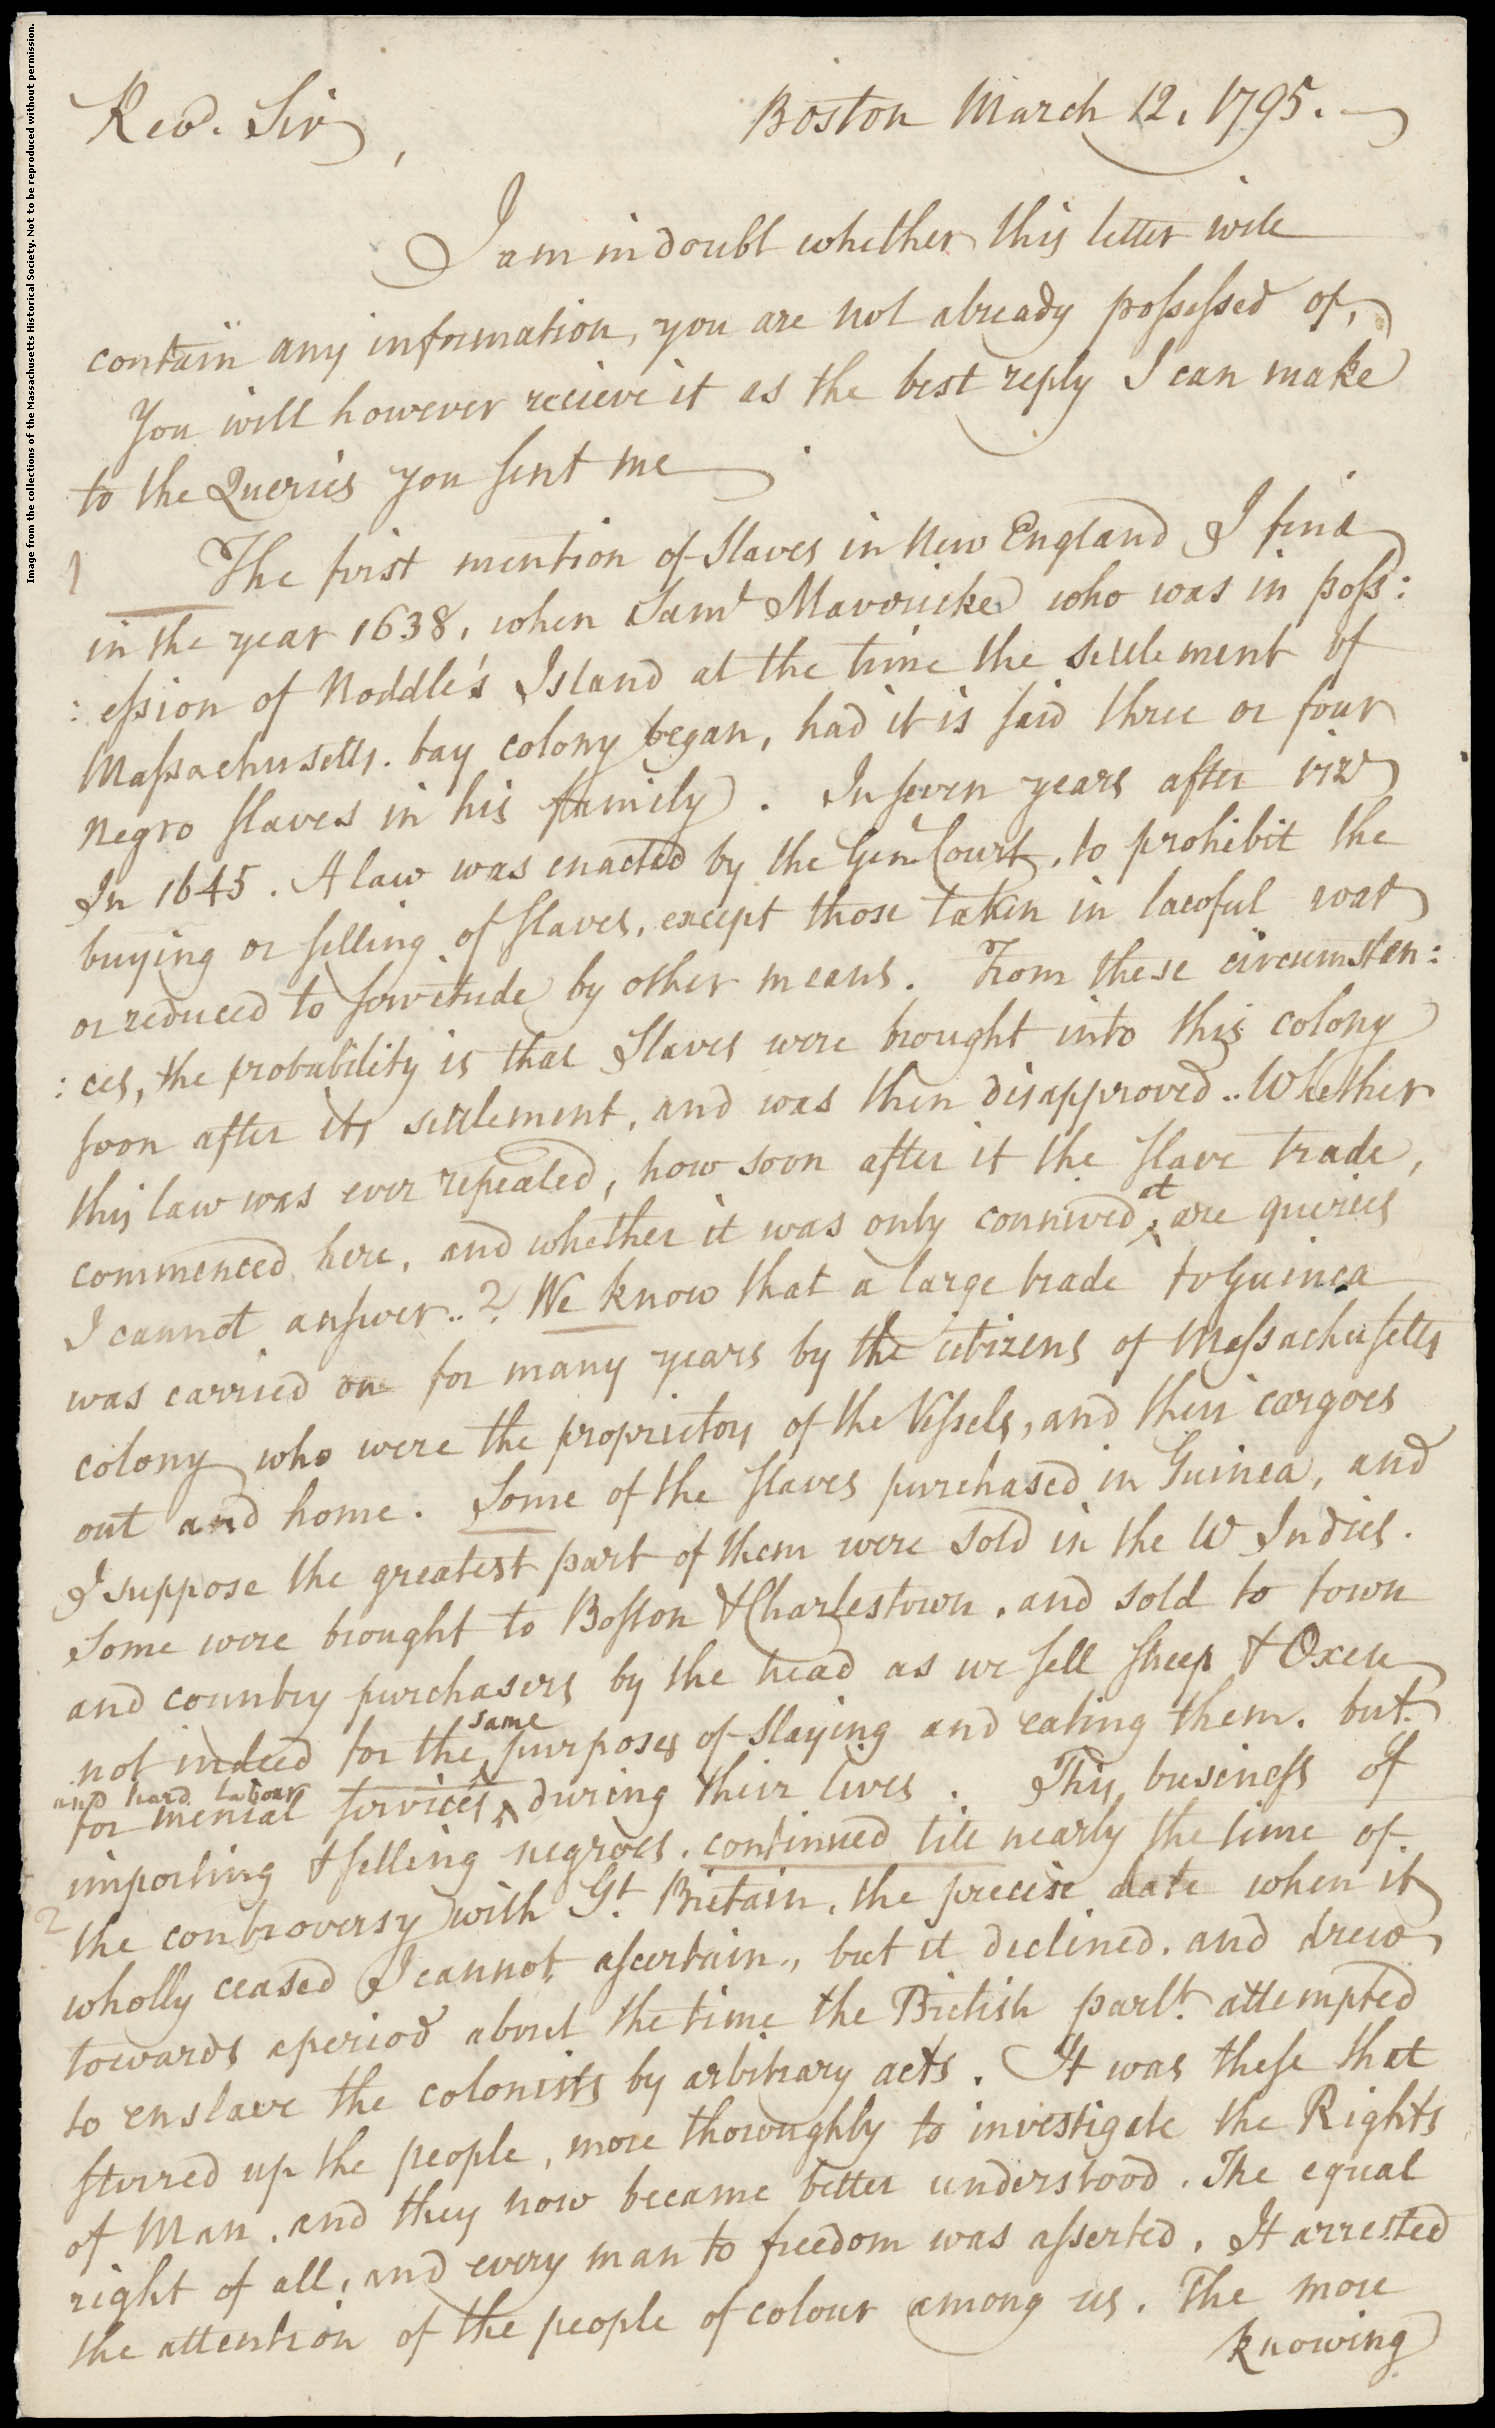 Image from the collections of the Massachusetts Historical Society. Not to be reproduced without permission.
Boston March 12. 1795.
Revd. Sir,
I am in doubt whether this letter will
contain any information, you are not already possessed of,
You will however recieve it as the best reply I can make
to the Queries you sent me.
1 The first mention of Slaves in New England I find
in the year 1638, when Saml Mavericke who was in poss:
:ession of Noddle's Island at the time the settlement of
Massachusetts. bay colony began, had it is said three or four
negro slaves in his family. In seven years after viz
In 1645. A law was enacted by the Genl Court, to prohibit the
buying or selling of slaves, except those taken in lawful war
or reduced to servitude by other means. From these circumstan:
:ces, the probability is that Slaves were brought into this colony
soon after its settlement, and was then disapproved.. Whether
this law was ever repealed, how soon after it the slave trade,
commenced here, and whether it was only connived ^at are queries
I cannot answer.. 2. We know that a large trade to Guinea
was carried on for many years by the citizens of Massachusetts
colony who were the proprietors of the Vessels, and their cargoes
out and home. Some of the slaves purchased in Guinea, and
I suppose the greatest part of them were sold in the W Indies.
Some were brought to Boston & Charlestown, and sold to town
and country purchasers by the head as we sell sheep & Oxen
not indeed for the ^same purposes of slaying and eating them. but
for menial services ^and hard labour during their lives. This business of
importing & selling negroes. continued till nearly the time of
2 the controversy with Gt. Brietain, the precise date when it
wholly ceased I cannot ascertain., but it declined. and drew
towards a period about the time the British parlt. attempted
to enslave the colonists by arbitrary acts. It was these that
sturred up the people, more thoroughly to investigate the Rights
of Man. and they now became better understood. The equal
right of all, and every man to freedom was asserted. It arrested
the attention of the people of colour among us. The more
knowing